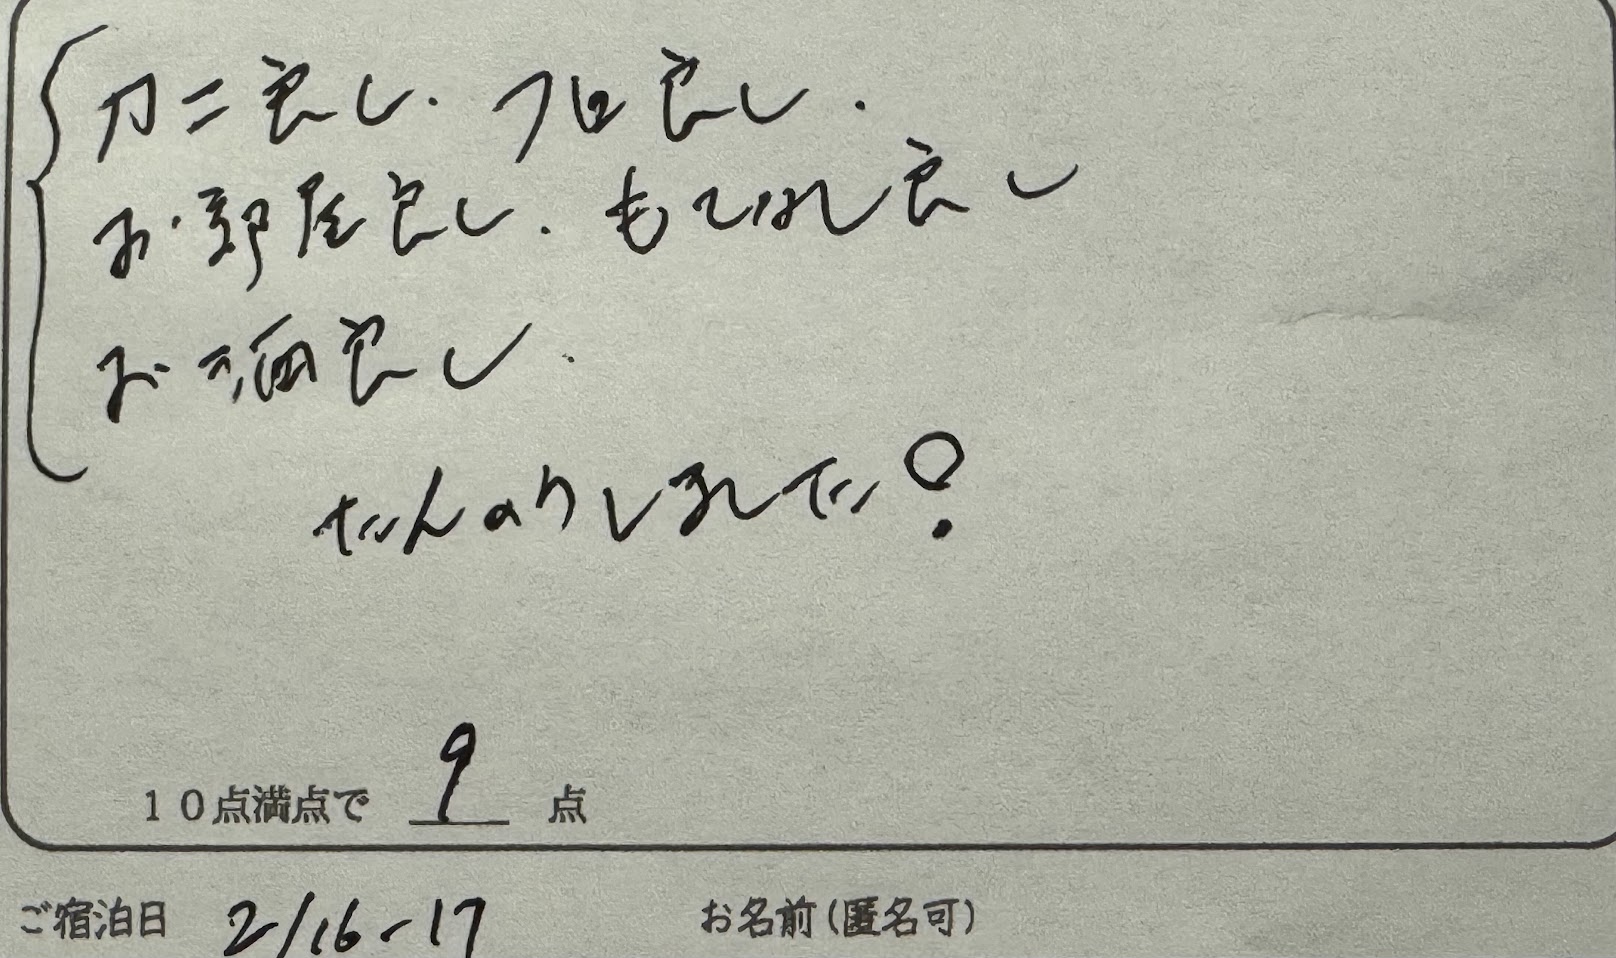 カニ良し. フロ良し.
お部屋良し. もてなし良し
お酒良し.
たんのうしました!
10点満点で 9 点
ご宿泊日 2/16-17 お名前(匿名可)